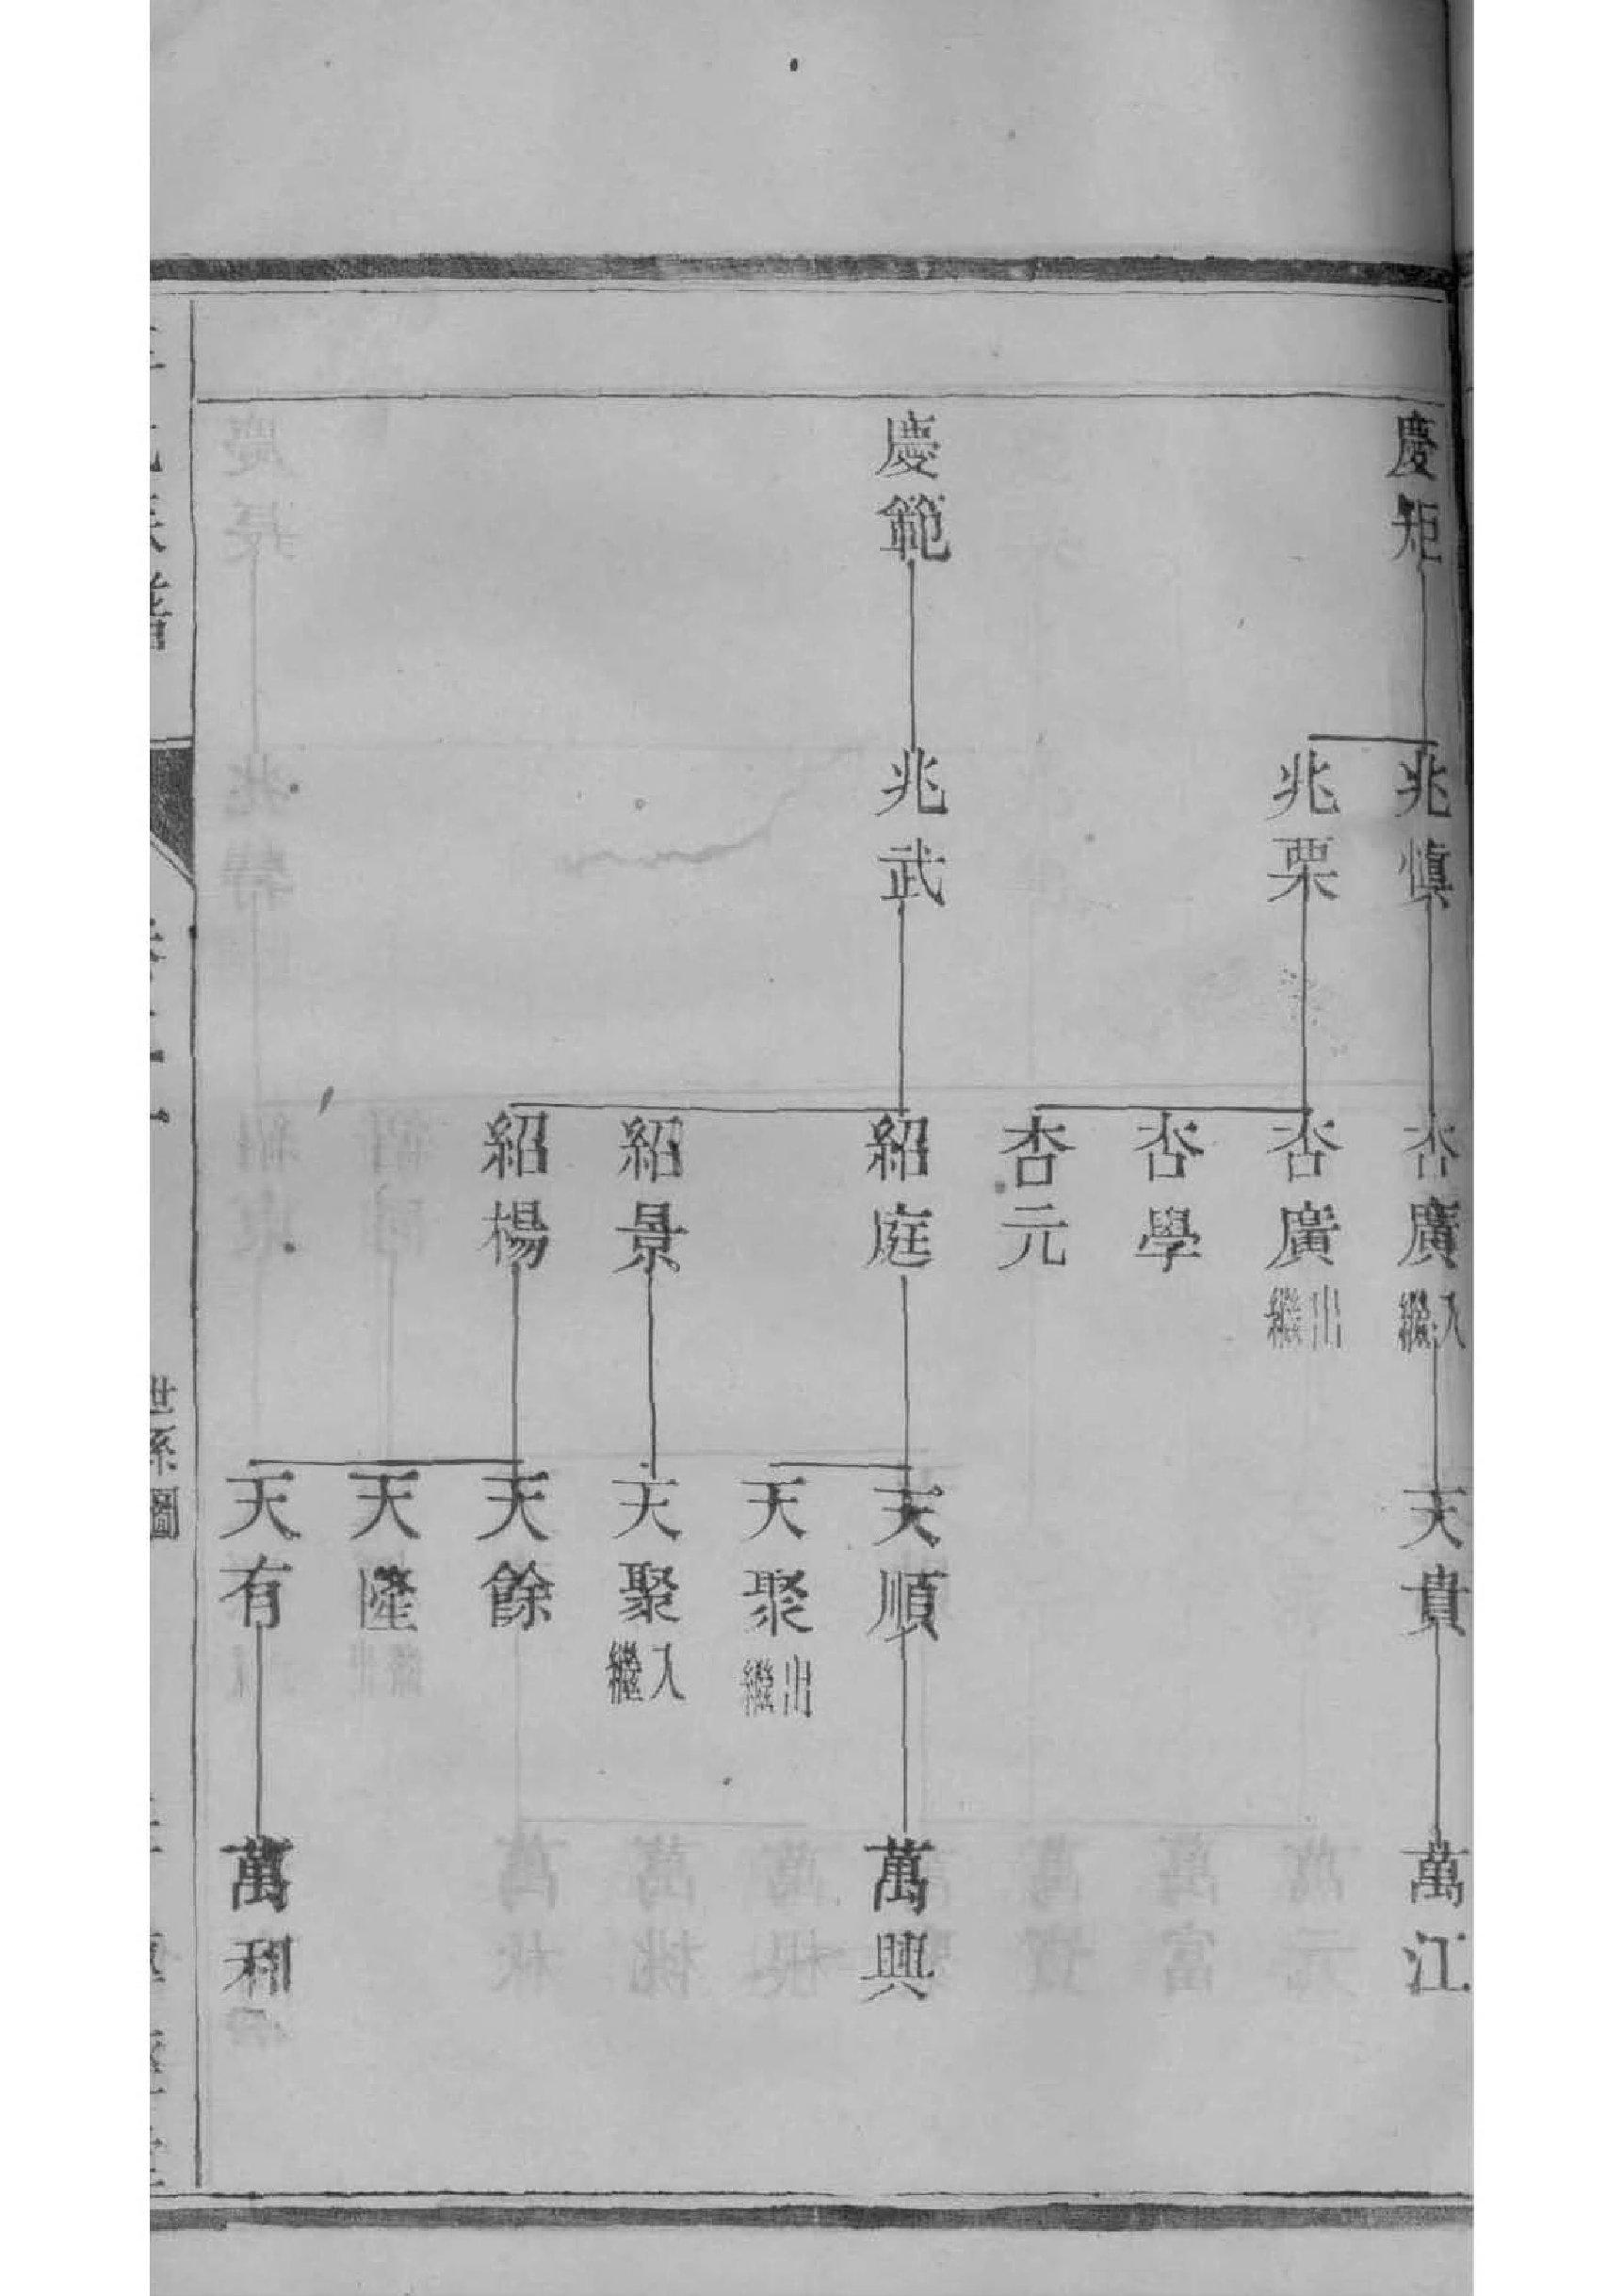 慶矩
慶範
兆慎
兆栗
兆武
杏廣入繼
杏廣出繼
杏學
杏元
紹庭
紹景
紹楊
天貴
天順
天聚出繼
天聚入繼
天餘
天隆
天有
萬江
萬興
萬利
世系圖